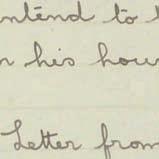 ntend to
his hou
Letter from